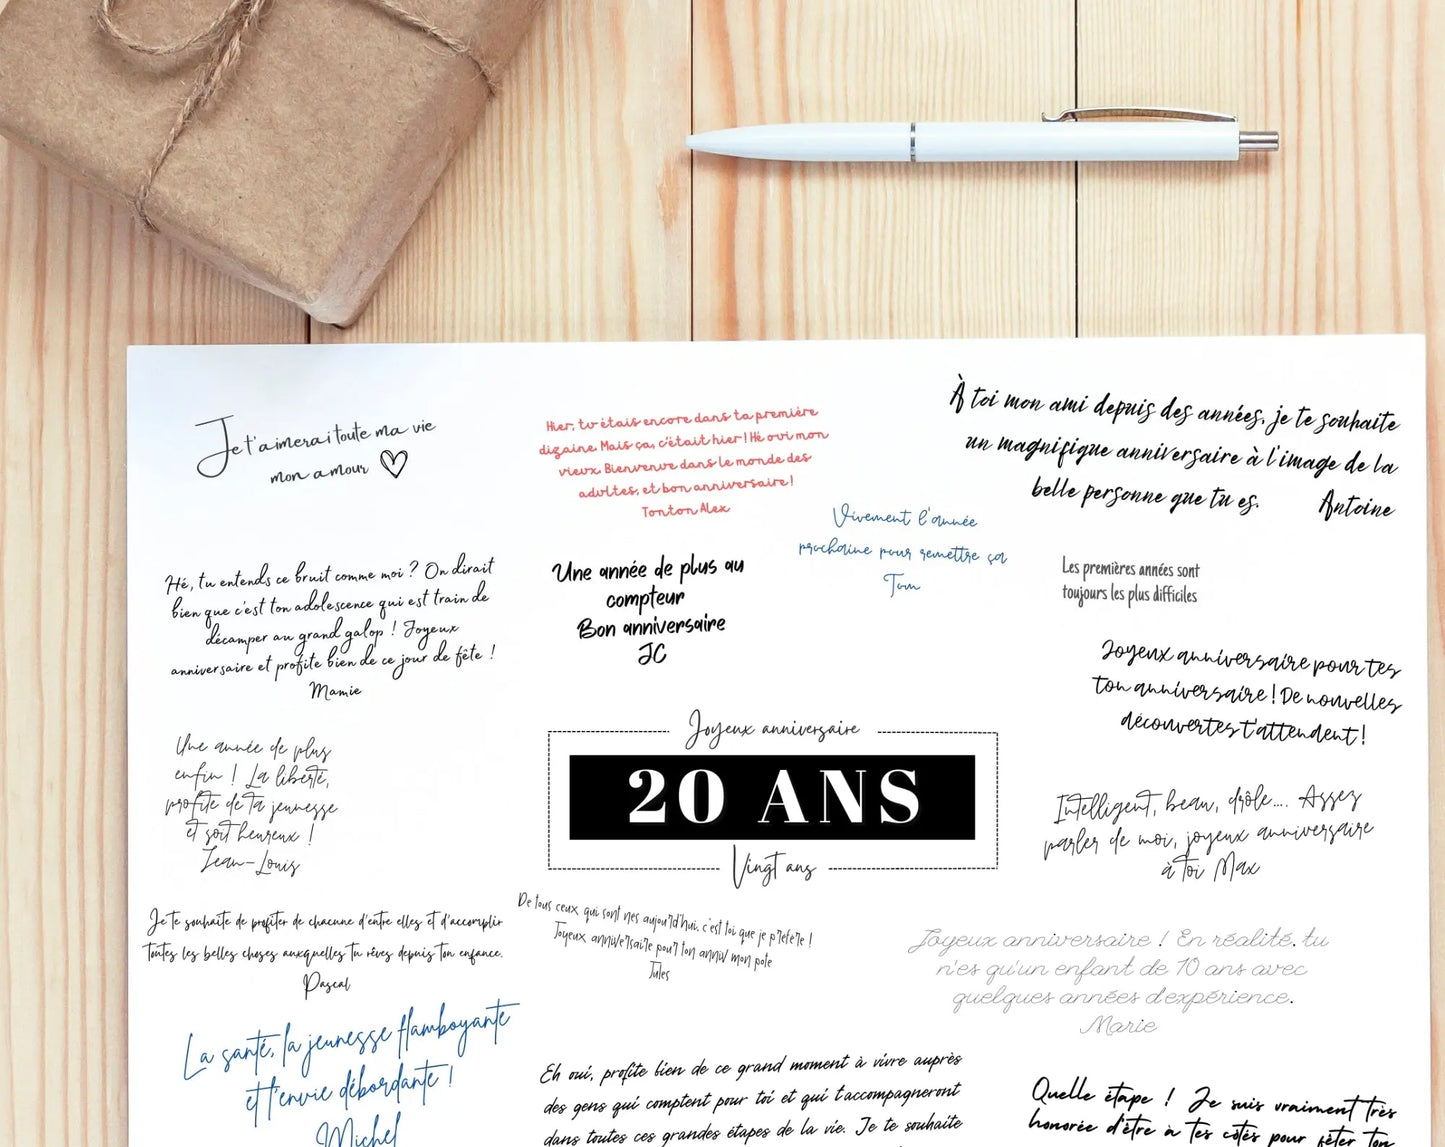 Je t'aimerai toute ma vie
mon amour
Hier, tu étais encore dans ta première
dizaine. Mais ça, c'était hier ! Hé oui mon
vieux. Bienvenue dans le monde des
adultes, et bon anniversaire !
Tonton Alex
À toi mon ami depuis des années, je te souhaite
un magnifique anniversaire à l'image de la
belle personne que tu es. Antoine
Vivement l'année
prochaine pour remettre ça
Tom
Hé, tu entends ce bruit comme moi ? On dirait
bien que c'est ton adolescence qui est train de
décamper au grand galop ! Joyeux
anniversaire et profite bien de ce jour de fête !
Mamie
Une année de plus au
compteur
Bon anniversaire
JC
Les premières années sont
toujours les plus difficiles
Joyeux anniversaire pour tes
ton anniversaire ! De nouvelles
découvertes t'attendent !
Une année de plus
enfin ! La liberté,
profite de ta jeunesse
et soit heureux !
Jean-Louis
Joyeux anniversaire
20 ANS
Vingt ans
Intelligent, beau, drôle.... Assez
parler de moi, joyeux anniversaire
à toi Max
Je te souhaite de profiter de chacune d'entre elles et d'accomplir
toutes les belles choses auxquelles tu rêves depuis ton enfance.
Pascal
De tous ceux qui sont nes aujourd'hui, c'est toi que je préfère !
Joyeux anniversaire pour ton anniv mon pote
Jules
Joyeux anniversaire ! En réalité, tu
n'es qu'un enfant de 10 ans avec
quelques années d'expérience.
Marie
La santé, la jeunesse flamboyante
et l'envie débordante !
Michel
Eh oui, profite bien de ce grand moment à vivre auprès
des gens qui comptent pour toi et qui t'accompagneront
dans toutes ces grandes étapes de la vie. Je te souhaite
Quelle étape ! Je suis vraiment très
honorée d'être à tes côtés pour fêter ton